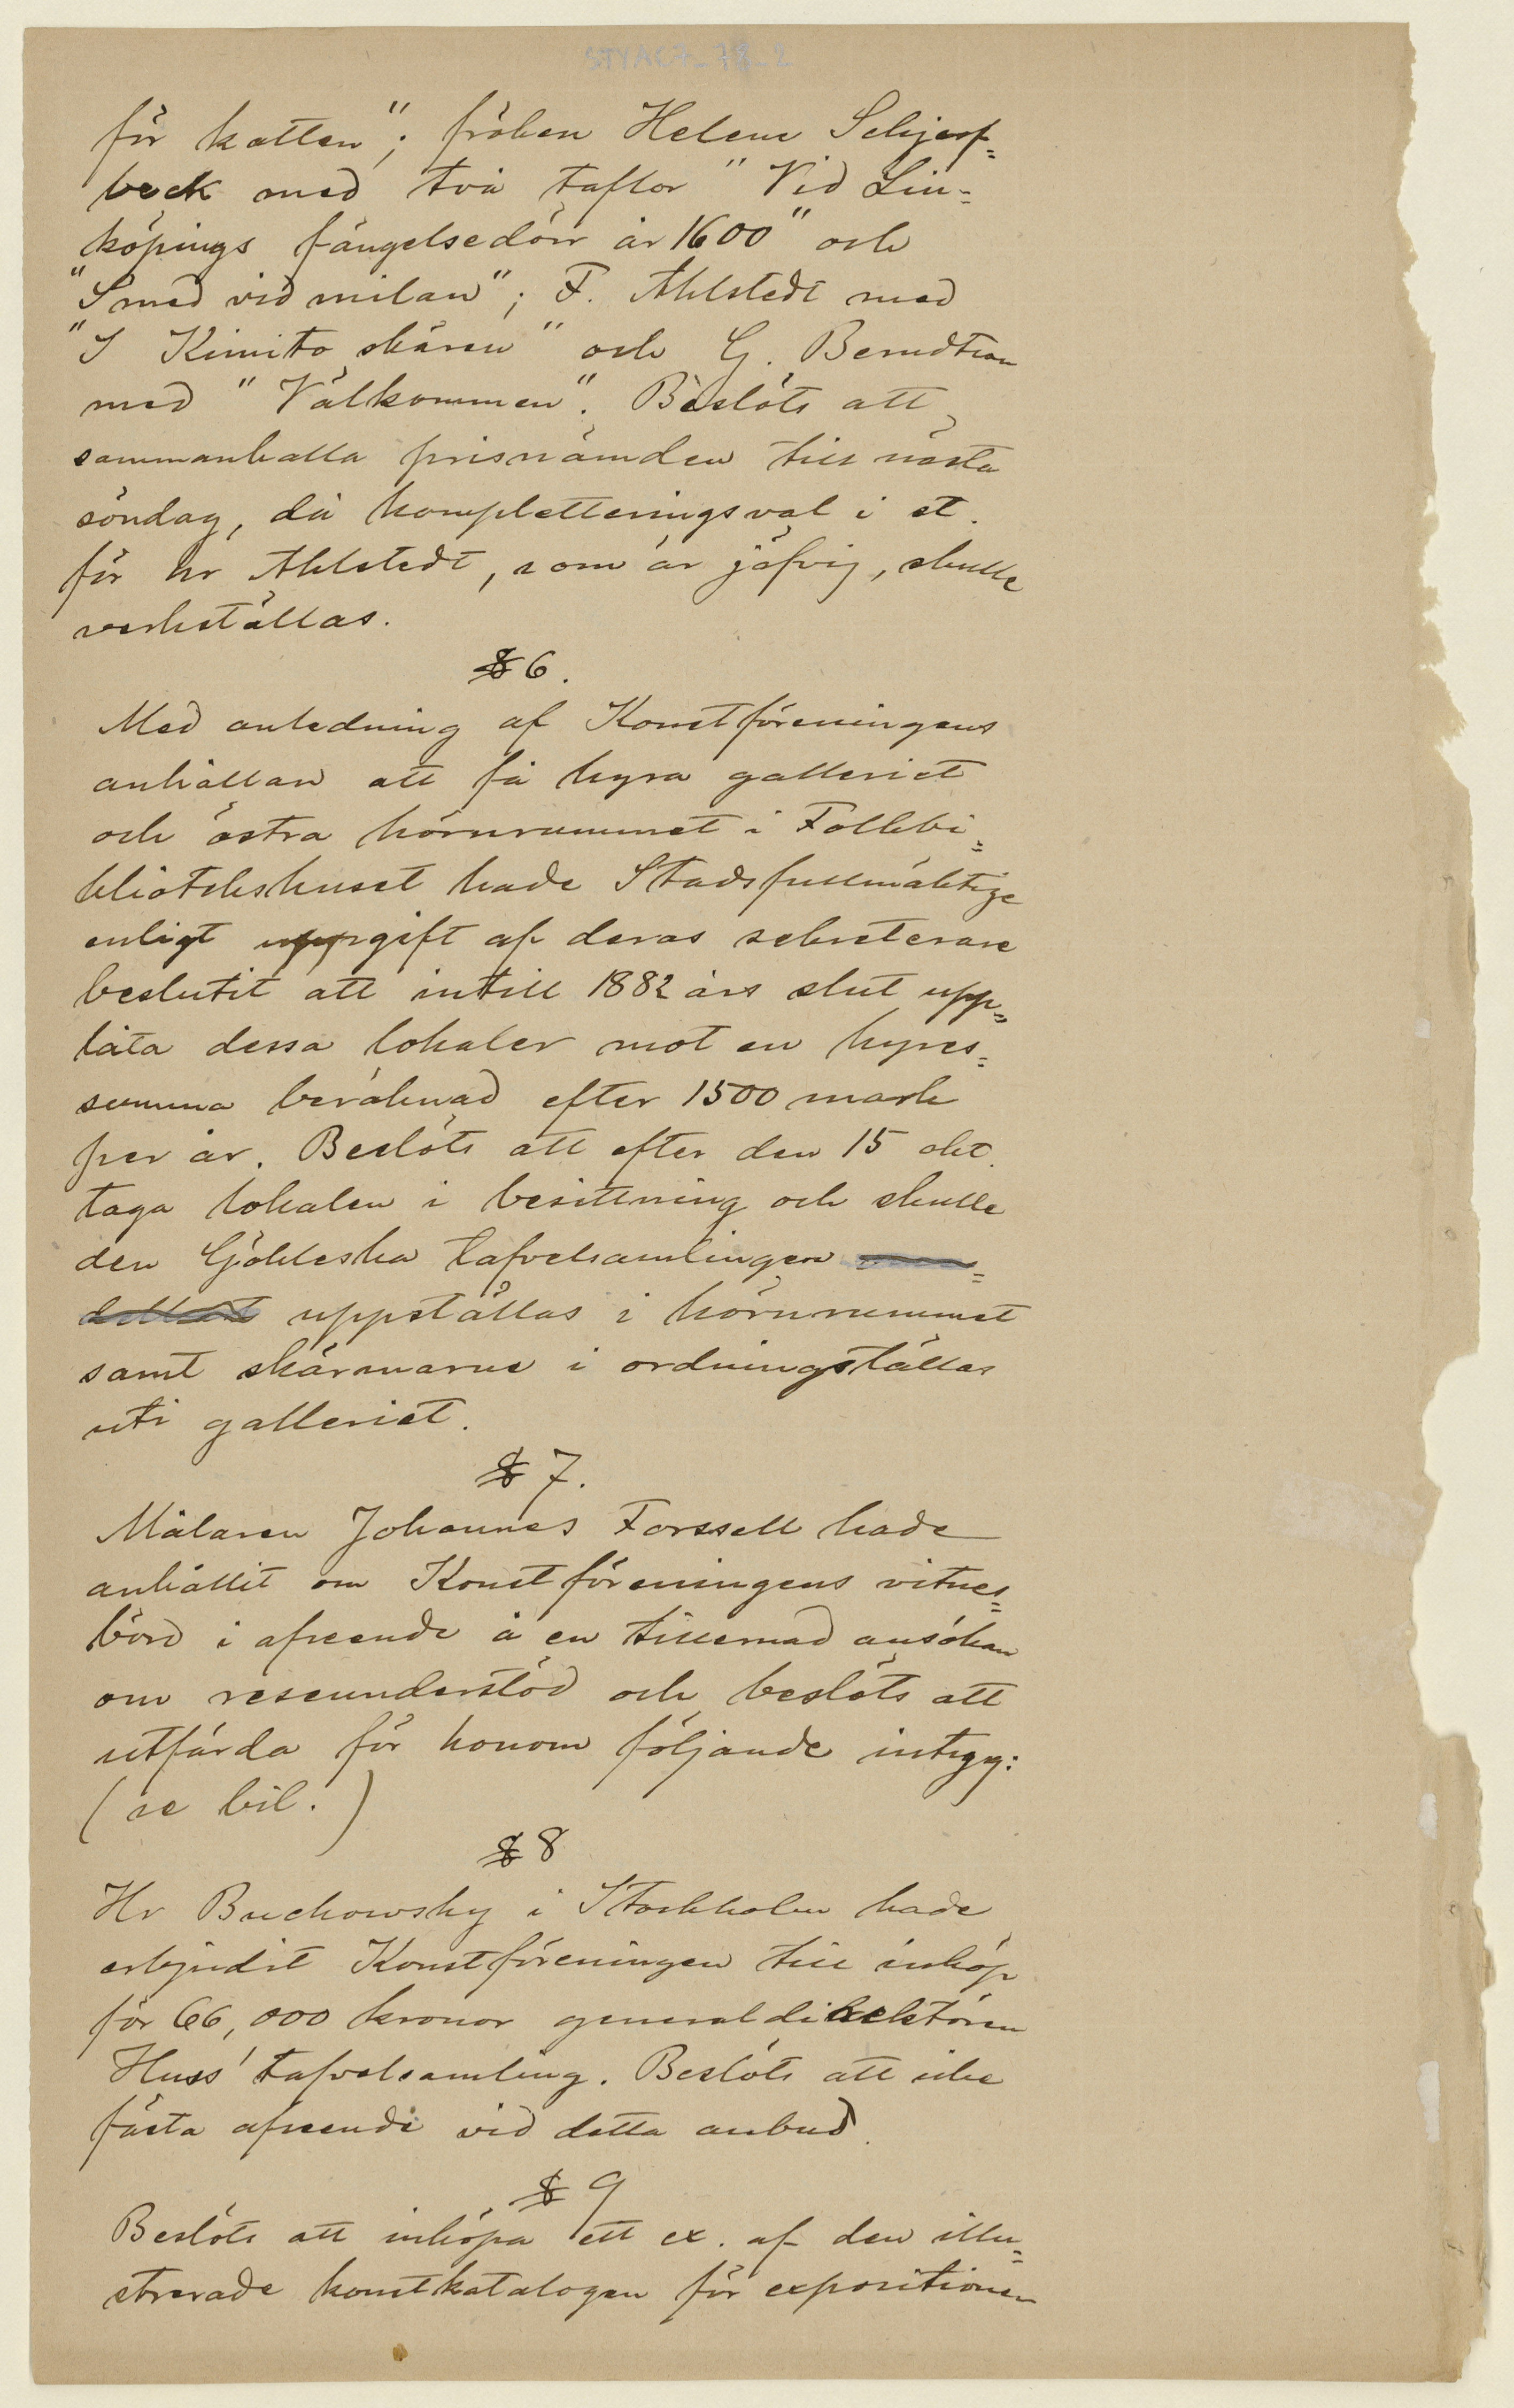 för katten"; fröken Helene Schjerf=
beck med två taflor "Vid Lin=
köpings fängelsedörr år 1600" och
"Smed vid milan"; F. Ahlstedt med
"I Kimito skären" och G. Berndtson
med "Välkommen". Beslöts att
sammankalla prisnämden till nästa
söndag, då kompletteringsval i st.
för hr Ahlstedt, som är jäfvig, skulle
verkställas.
§ 6.
Med anledning af Konstföreningens
anhållan att få hyra galleriet
och östra hörnrummet i Folkbi=
bliotekshuset hade Stadsfullmäktige
enligt uppgift af deras sekreterare
beslutit att intill 1882 års slut upp=
låta dessa lokaler mot en hyres=
summa beräknad efter 1500 mark
per år. Beslöts att efter den 15 okt.
taga lokalen i besittning och skulle
den Gökleska tafvelsamlingen
uppställas i hörnrummet
samt skärmarne i ordningställas
uti galleriet.
§ 7.
Målaren Johannes Forssell hade
anhållit om Konstföreningens vitnes=
börd i afseende å en tillernad ansökan
om reseunderstöd och beslöts att
utfärda för honom följande intyg:
(se bil.)
§ 8
Hr Buchowsky i Stockholm hade
erbjudit Konstföreningen till inköp
för 66,000 kronor generaldirektören
Huss' tafvelsamling. Beslöts att icke
fästa afseende vid detta anbud.
§ 9
Beslöts att inköpa ett ex. af den illu=
strerade konstkatalogen för expositionen